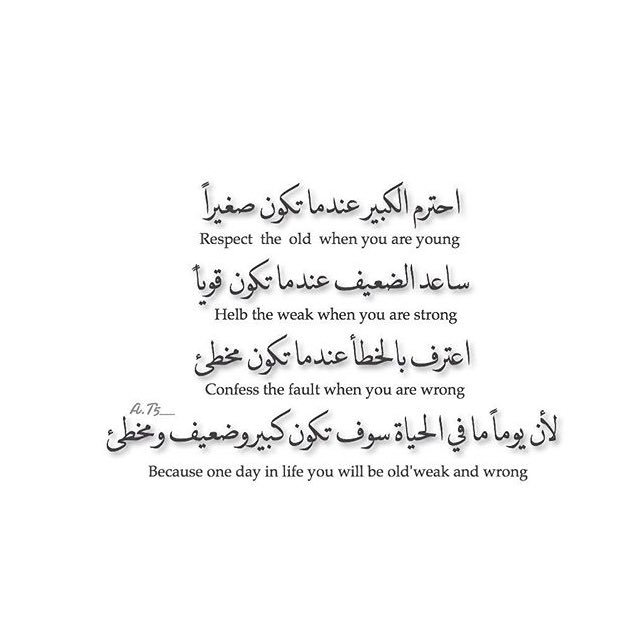 احترم الكبير عندما تكون صغيراً
Respect the old when you are young
ساعد الضعيف عندما تكون قوياً
Helb the weak when you are strong
اعترف بالخطأ عندما تكون مخطئ
Confess the fault when you are wrong
A.T5__
لأن يوماً ما في الحياة سوف تكون كبير وضعيف ومخطئ
Because one day in life you will be old'weak and wrong